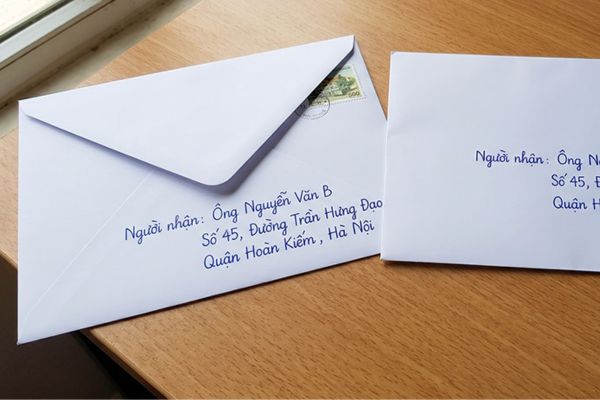 Người nhận: Ông Nguyễn Văn B
Số 45, Đường Trần Hưng Đạo
Quận Hoàn Kiếm, Hà Nội
Người nhận: Ông
Số 45,
Quận